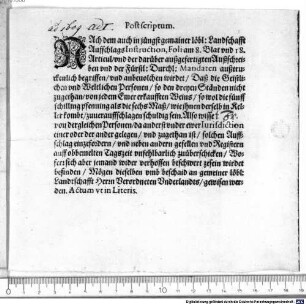 Postscriptum.
NAch dem auch in jüngst gemainer löbl: Landschafft
Auffschlags Instruction, Foli am 8. Blat vnd 18.
Articul/vnd der darüber außgefertigten Außschrei-
ben vnd der Fürstl: Durchl: Mandaten außtru-
ckenlich begriffen/ vnd anbeuolchen wirdet/ Daß die Geistli-
chen vnd Weltlichen Personen/ so den dreyen Ständen nicht
zugethan/von jedem Emer erkaufften Weins/ so wol die fünff
schilling pfenning als die sechs Maß/ wie jhnen derselb in Kel-
ler kombt/zuuerauffschlagen schuldig sein. Also wisset
von dergleichen Personen/da anderst vnder ewer Iurisdiction
einer oder der ander gelegen/ vnd zugethan ist/ solchen Auff-
schlag einzefordern/ vnd neben andern gefellen vnd Registern
auff obbemelten Tagszeit vnfehlbarlich zuüberschicken/ Wo-
fern sich aber jemand wider verhoffen beschwert zesein wurdet
befinden/ Mögen dieselben vmb beschaid an gemeiner löbl:
Landschafft Herrn Verordneten Vnderlands/ gewisen wer-
den. Actum vt in Literis.